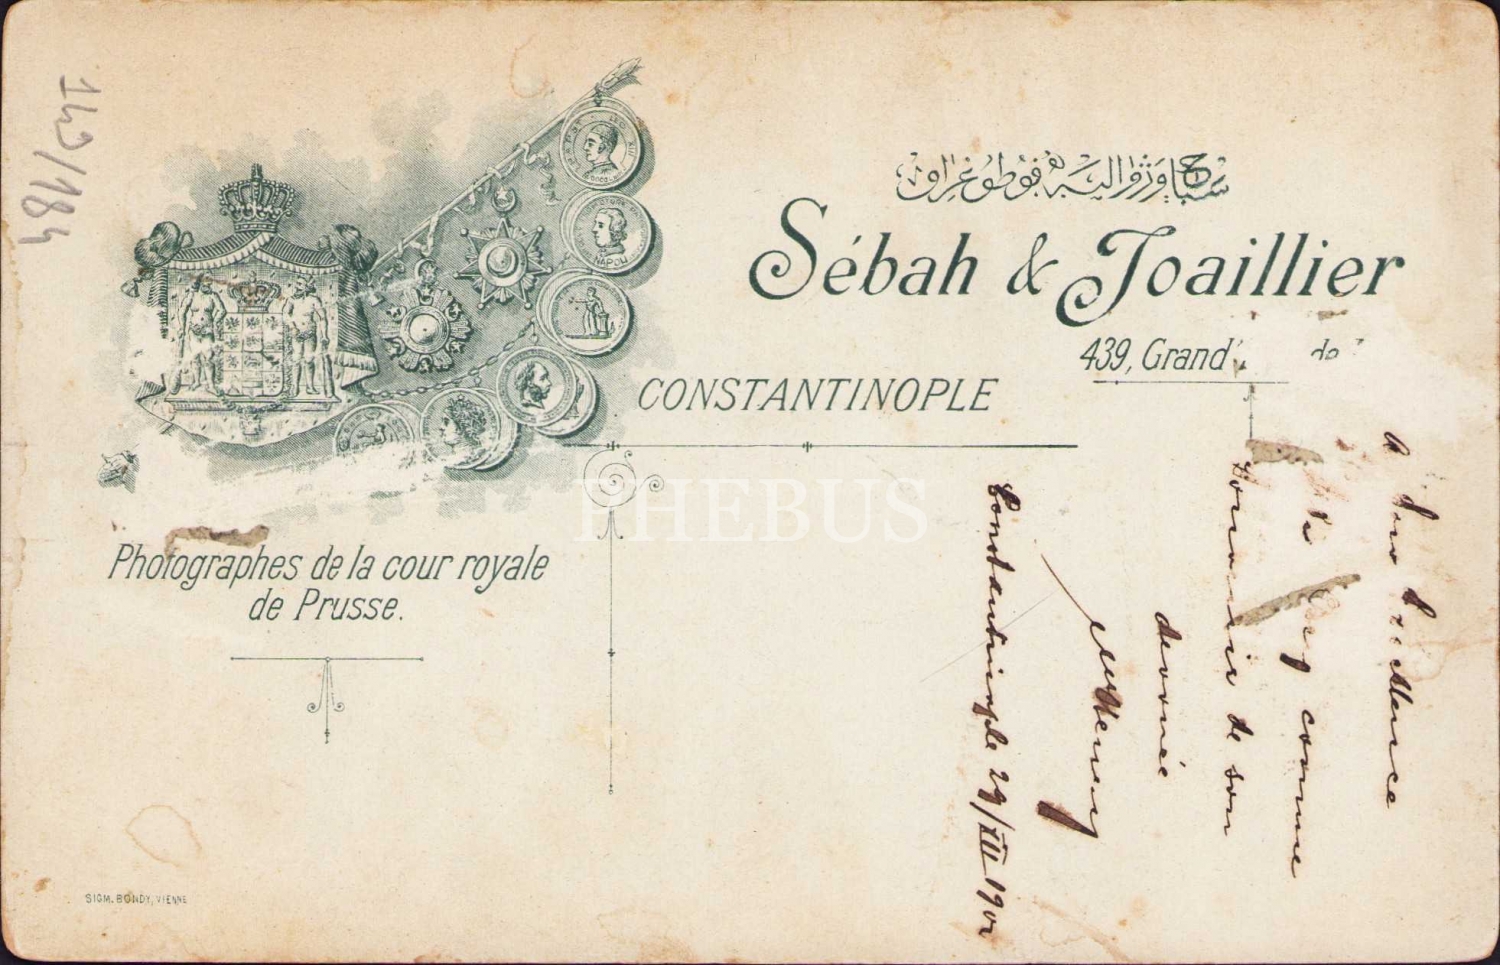 142/184
سباح و ژوالیه فوطوغراق
Sébah & Joaillier
439, Grand de
CONSTANTINOPLE
Photographes de la cour royale
de Prusse.
SIGM. BONDY, VIENNE
NAPOLI
PHEBUS
A Son Excellence
Bey comme
souvenir de son
devouée
Constantinople 29/XII 1901